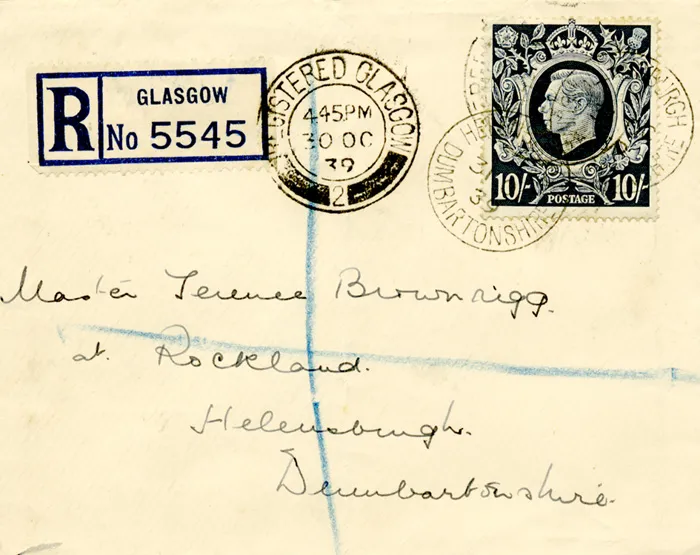 R
GLASGOW
No 5545
REGISTERED GLASGOW
4 45PM
30 OC
39
2
HE
DUMBARTONSHIRE
31
39
BURGH
10/- POSTAGE 10/-
Master Terence Brownrigg.
at Rockland.
Helensburgh.
Dumbartonshire.